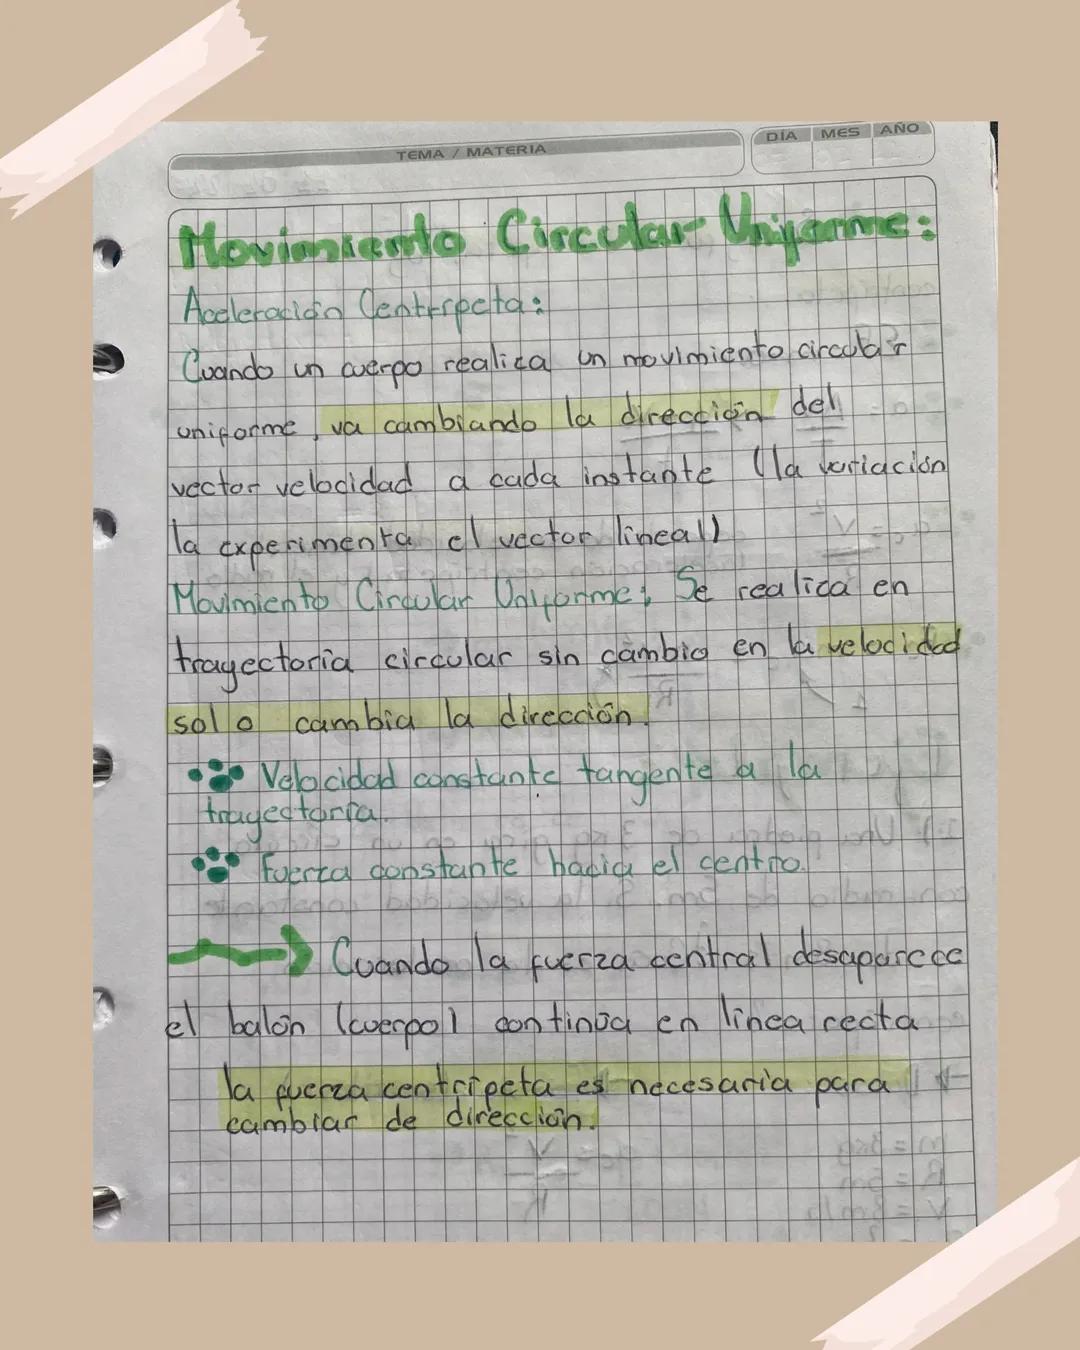 TEMA / MATERIA
DIA MES AÑO
Movimiento Circular Uniforme:
Aceleración Centrípeta:
Cuando un cuerpo realiza un movimiento circular
uniforme, va cambiando la dirección del
vector velocidad a cada instante (la variación
la experimenta el vector lineal)
Movimiento Circular Uniforme: Se realiza en
trayectoria circular sin cambio en la velocidad
solo cambia la dirección.
Velocidad constante tangente a la
trayectoria.
Fuerza constante hacia el centro.
Cuando la fuerza central desaparece
el balón (cuerpo) continúa en línea recta
la fuerza centrípeta es necesaria para
cambiar de dirección.